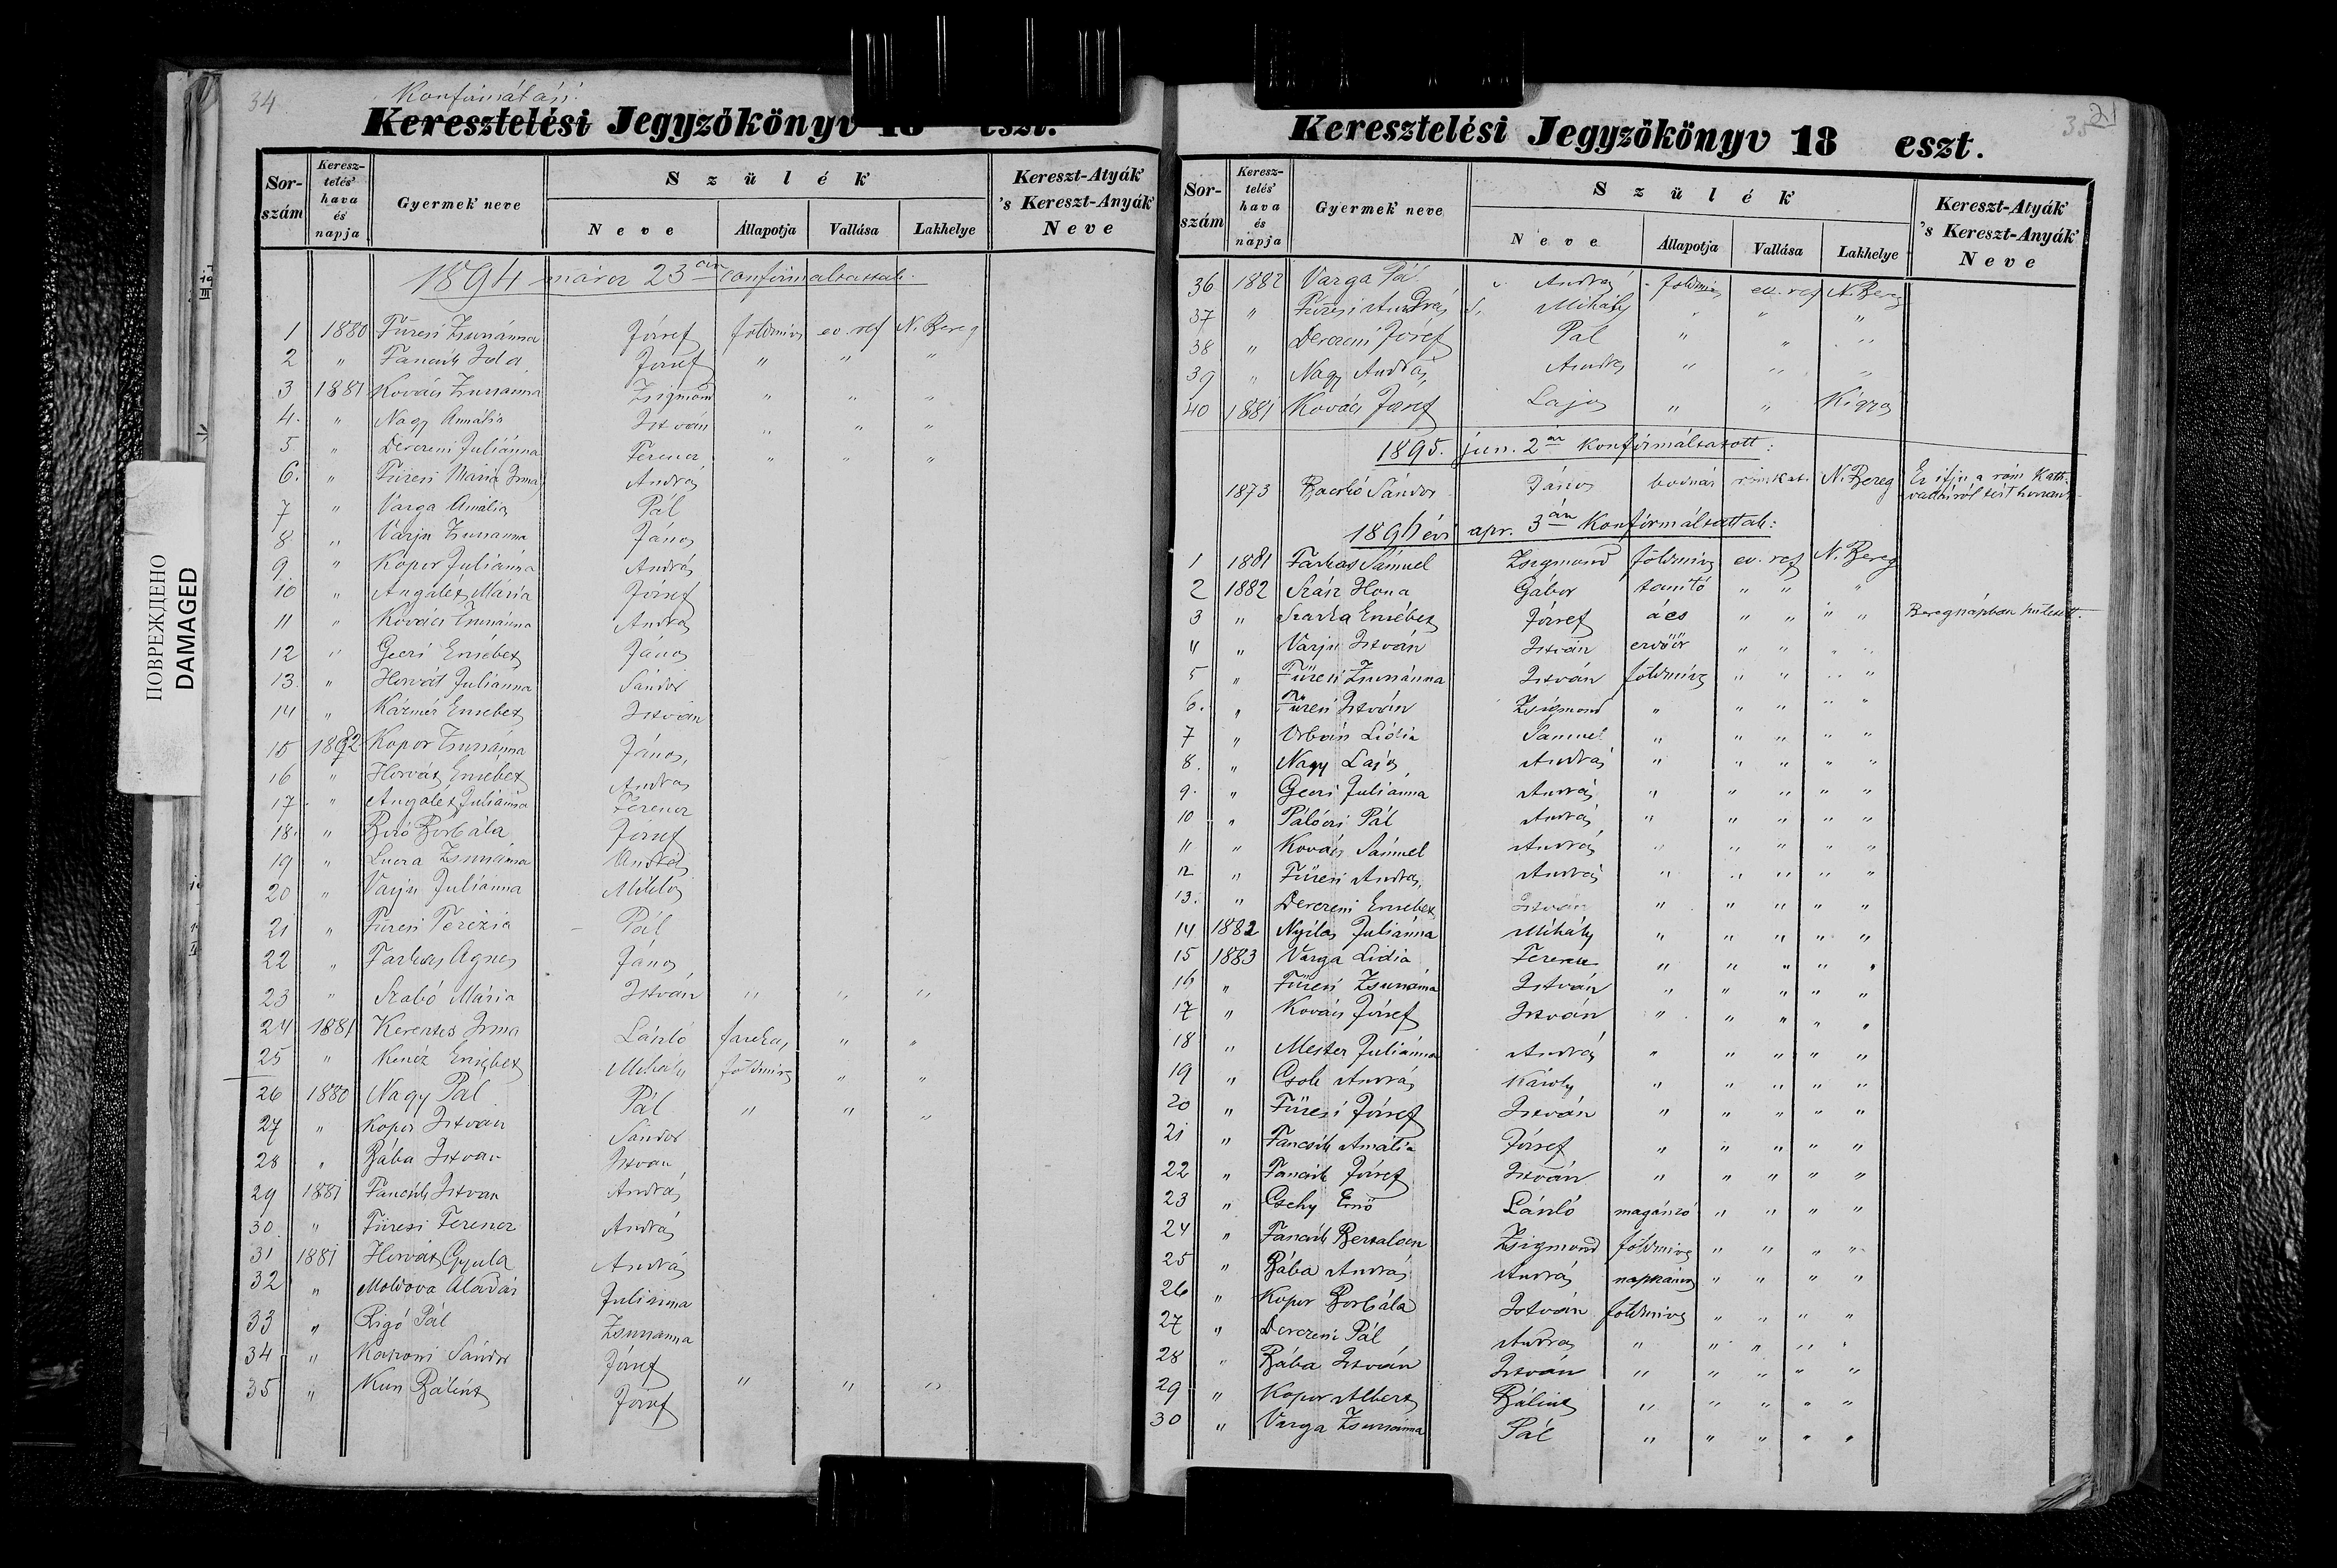 34
Konfirmátási
Keresztelési Jegyzőkönyv 18 eszt.
Sor-szám Keresz-telés' hava és napja Gyermek' neve Szülék Neve Állapotja Vallása Lakhelye Kereszt-Atyák 's Kereszt-Anyák' Neve
1894 márcz 23án confirmáltattak.
1 1880 Füresi Zsuzsánna József földmives ev. ref N. Bereg
2 " Fancsik Ida József " " "
3 1881 Kovács Zsuzsánna Zsigmond " " "
4. " Nagy Amália István " " "
5 " Derczeni Juliánna Ferencz " " "
6. " Füresi Mária Irma András
7 " Varga Amália Pál
8 " Varju Zsuzsanna János
9. " Kopor Juliánna András
10 " Angalét Mária József
11 " Kovács Zsuzsánna András
12 " Geczi Erzsébet János
13. " Horvát Juliánna Sándor
14 " Kázmér Erzsebet István
15 1882 Kopor Zsuzsánna János,
16 " Horvát Erzsébet András
17. " Angalét Juliánna Ferencz
18. " Biró Borbála József
19 " Lucza Zsuzsánna András
20 " Varju Juliánna Miklós
21 " Füresi Terézia Pál
22 " Farkas Ágnes János
23 " Szabó Mária István " " "
24 1881 Kerentes Irma László " "
25 " Kenéz Erzsébet Mihály földmives " "
26 1880 Nagy Pál Pál " " "
27 " Kopor István Sándor
28 " Bába István István
29 1881 Fancsik István András
30. " Füresi Ferencz András
31 1881 Horvát Gyula András
32 " Moldova Aladár Juliánna
33 " Rigó Pál Zsuzsanna
34 " Sándor József
35 " Kun Bálint József " " "
ПОВРЕЖДЕНО
DAMAGED
35
21
Keresztelési Jegyzőkönyv 18 eszt.
Sor-szám Keresz-telés' hava és napja Gyermek' neve Szülék Neve Állapotja Vallása Lakhelye Kereszt-Atyák 's Kereszt-Anyák' Neve
36 1882 Varga Pál András földmives ev. ref N. Bereg
37 " Füresi András Mihály " " "
38 " Derczeni József Pál " " "
39 " Nagy András, András " " "
40 1881 Kovács József Lajos " "
1895. jun. 2án Konfirmáltatott:
1873 Sándor János bodnár rom kath N. Bereg Ez ifju a róm kath.
vallásról tért hozzánk
1896 évi apr. 3án Konfirmáltattak:
1 1881 Farkas Sámuel Zsigmond földmives ev. ref N. Bereg
2 1882 Szász Ilona Gábor tanító " " "
3 " Szarka Erzsébet József ács " " " " Beregszászban született.
4 " Varju István István erdőőr " " " "
5 " Füresi Zsuzsánna István földmives " " " "
6. " Füresi István Zsigmond " " " " "
7 " Orbán Lidia Samuel " " " " "
8. " Nagy Lajos András " " " " "
9. " Geczi Juliánna András " " " " "
10 " Pálóczi Pál András " " " " "
11 " Kovács Sámuel András " " " " "
12 " Füresi András, András " " " " "
13. " Derczeni Erzsebet István " " " " "
14 1882 Nyilas Juliánna Mihály " " " " "
15 1883 Varga Lidia Ferencz " " " " "
16 " Füresi Zsuzsánna István " " " " "
17 " Kovács József István " " " " "
18 " Mester Juliánna András " " " " "
19 " Csok András Károly " " " " "
20 " Füresi József István " " " " "
21 " Fancsik Amália József " " " " "
22 " Fancsik József István " " " " "
23 " Csehy Ernő László magánzó " " " "
24 " Fancsik Bertalan Zsigmond földmives " " " "
25 " Bába András András napszámos " " " "
26 " Kopor Borbála István földmives " " " "
27 " Derczeni Pál András " " " " "
28 " Bába István István " " " " "
29 " Kopor Albert Bálint " " " " "
30 " Varga Zsuzsánna Pál " " " " "